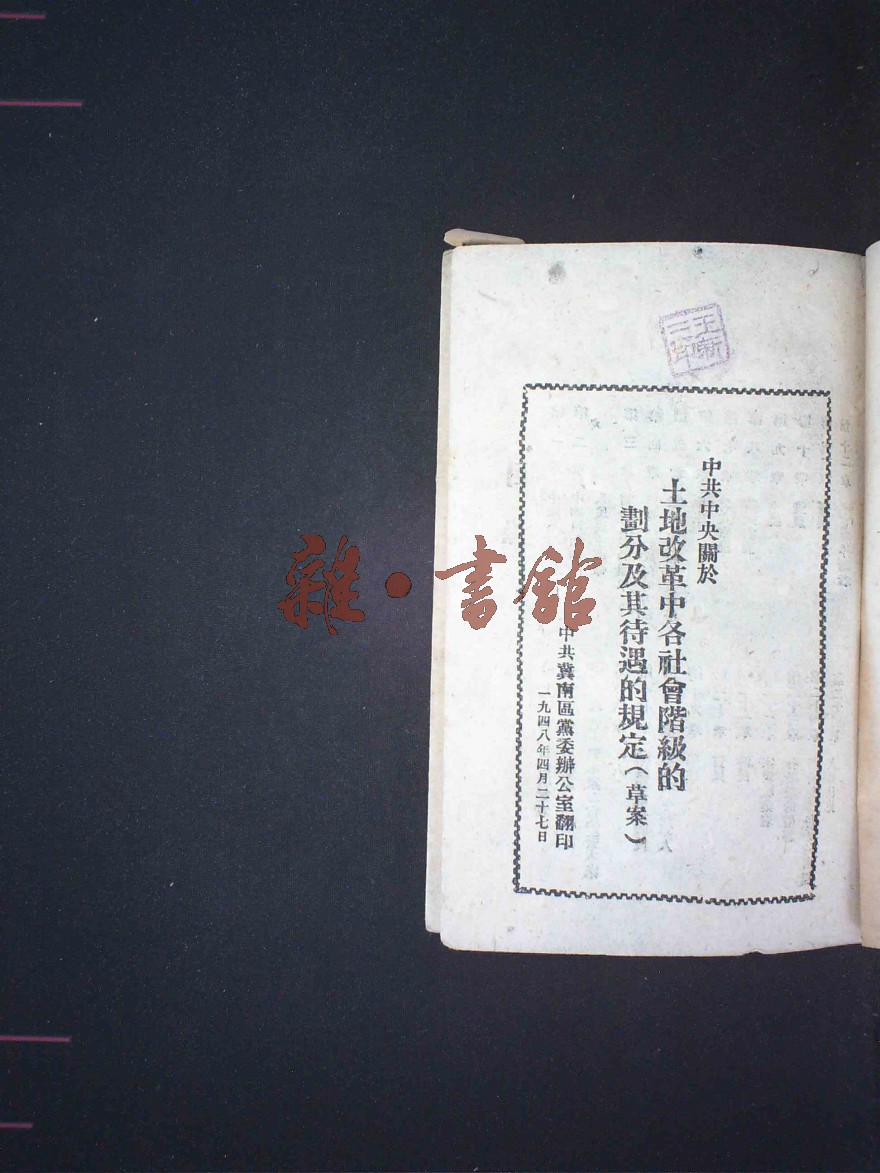 王新
二印
中共中央關於
土地改革中各社會階級的
劃分及其待遇的規定（草案）
中共冀南區黨委辦公室翻印
一九四八年四月二十七日
雜·書館